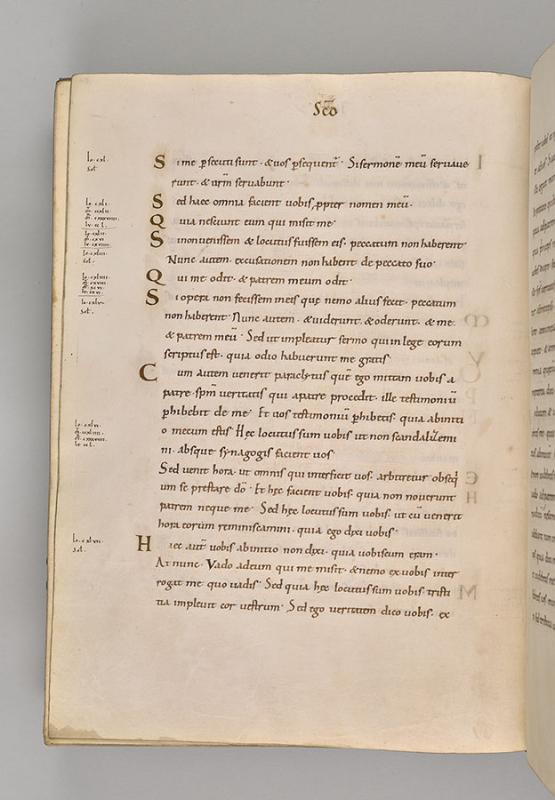 Scd̄
S i me p̱secuti sunt · & uos p̱sequent̄ · Si sermonē meū seruaue
runt · & urm̄ seruabunt ·
S ed haec omnia facient uobis ꝓpter nomen meū ·
Q uia nesciunt eum qui misit me ·
S i non uenissem & locutus fuissem eis · peccatum non haberent ·
Nunc autem · excusationem non habent de peccato suo ·
Q ui me odit · & patrem meum odit ·
S i opera non fecissem in eis quę nemo alius fecit · peccatum
non haberent · Nunc autem · & uiderunt · & oderunt · & me ·
& patrem meū · Sed ut impleatur sermo qui in lege eorum
scriptus est · quia odio habuerunt me gratis ·
C um autem uenerit paraclytus quē ego mittam uobis a
patre · spm̄ ueritatis qui a patre procedit · ille testimoniū
phibebit de me · Et uos testimoniū phibetis · quia ab initi
o mecum estis · Hęc locutus sum uobis ut non scandalizemi
ni · absque synagogis facient uos ·
Sed uenit hora · ut omnis qui interficit uos · arbitretur obseq̄
um se prestare dō · Et hęc facient uobis · quia non nouerunt
patrem neque me · Sed hęc locutus sum uobis · ut cū uenerit
hora eorum reminiscamini · quia ego dixi uobis ·
H aec aut̄ uobis ab initio non dixi · quia uobiscum eram ·
At nunc · Uado ad eum qui me misit · & nemo ex uobis inter
rogat me quo uadis · Sed quia hęc locutus sum uobis · tristi
tia impleuit cor uestrum · Sed ego ueritatem dico uobis · ex